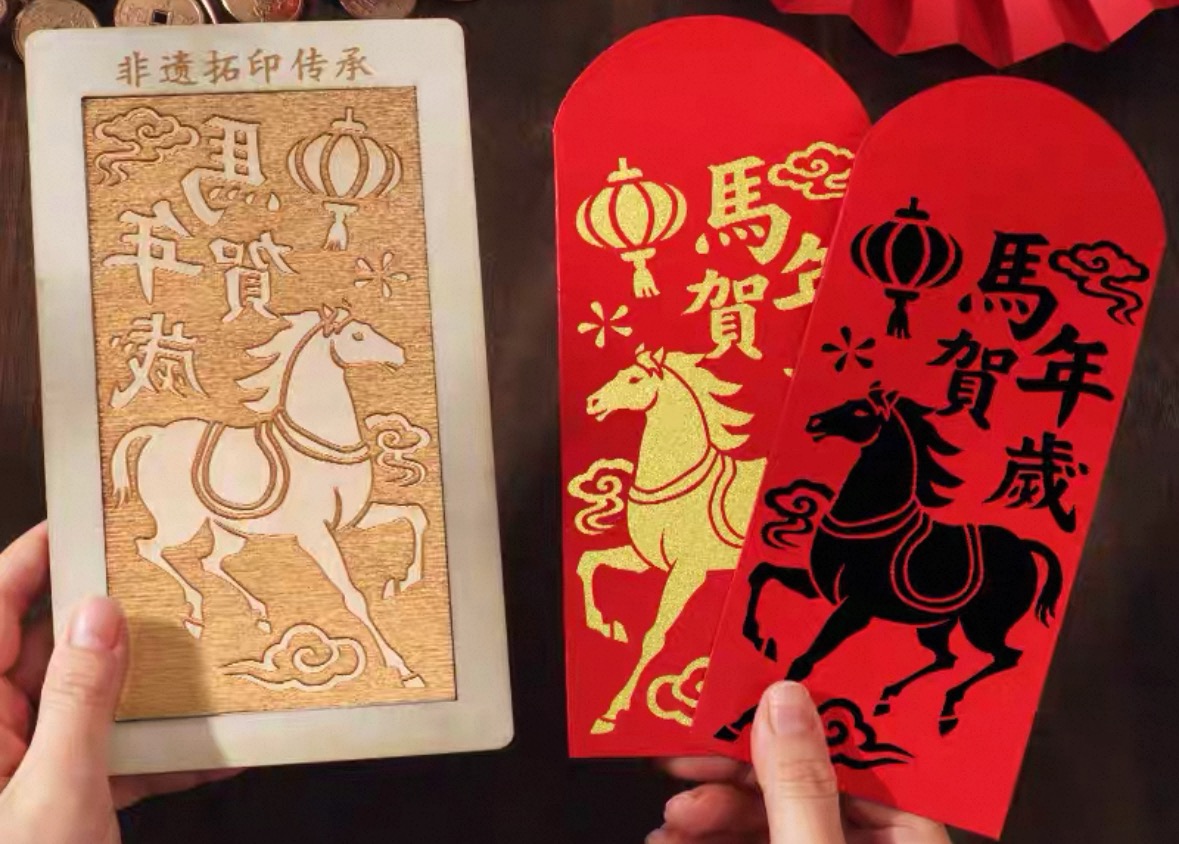 非遗拓印传承
馬年賀歲
馬年賀
馬年賀歲